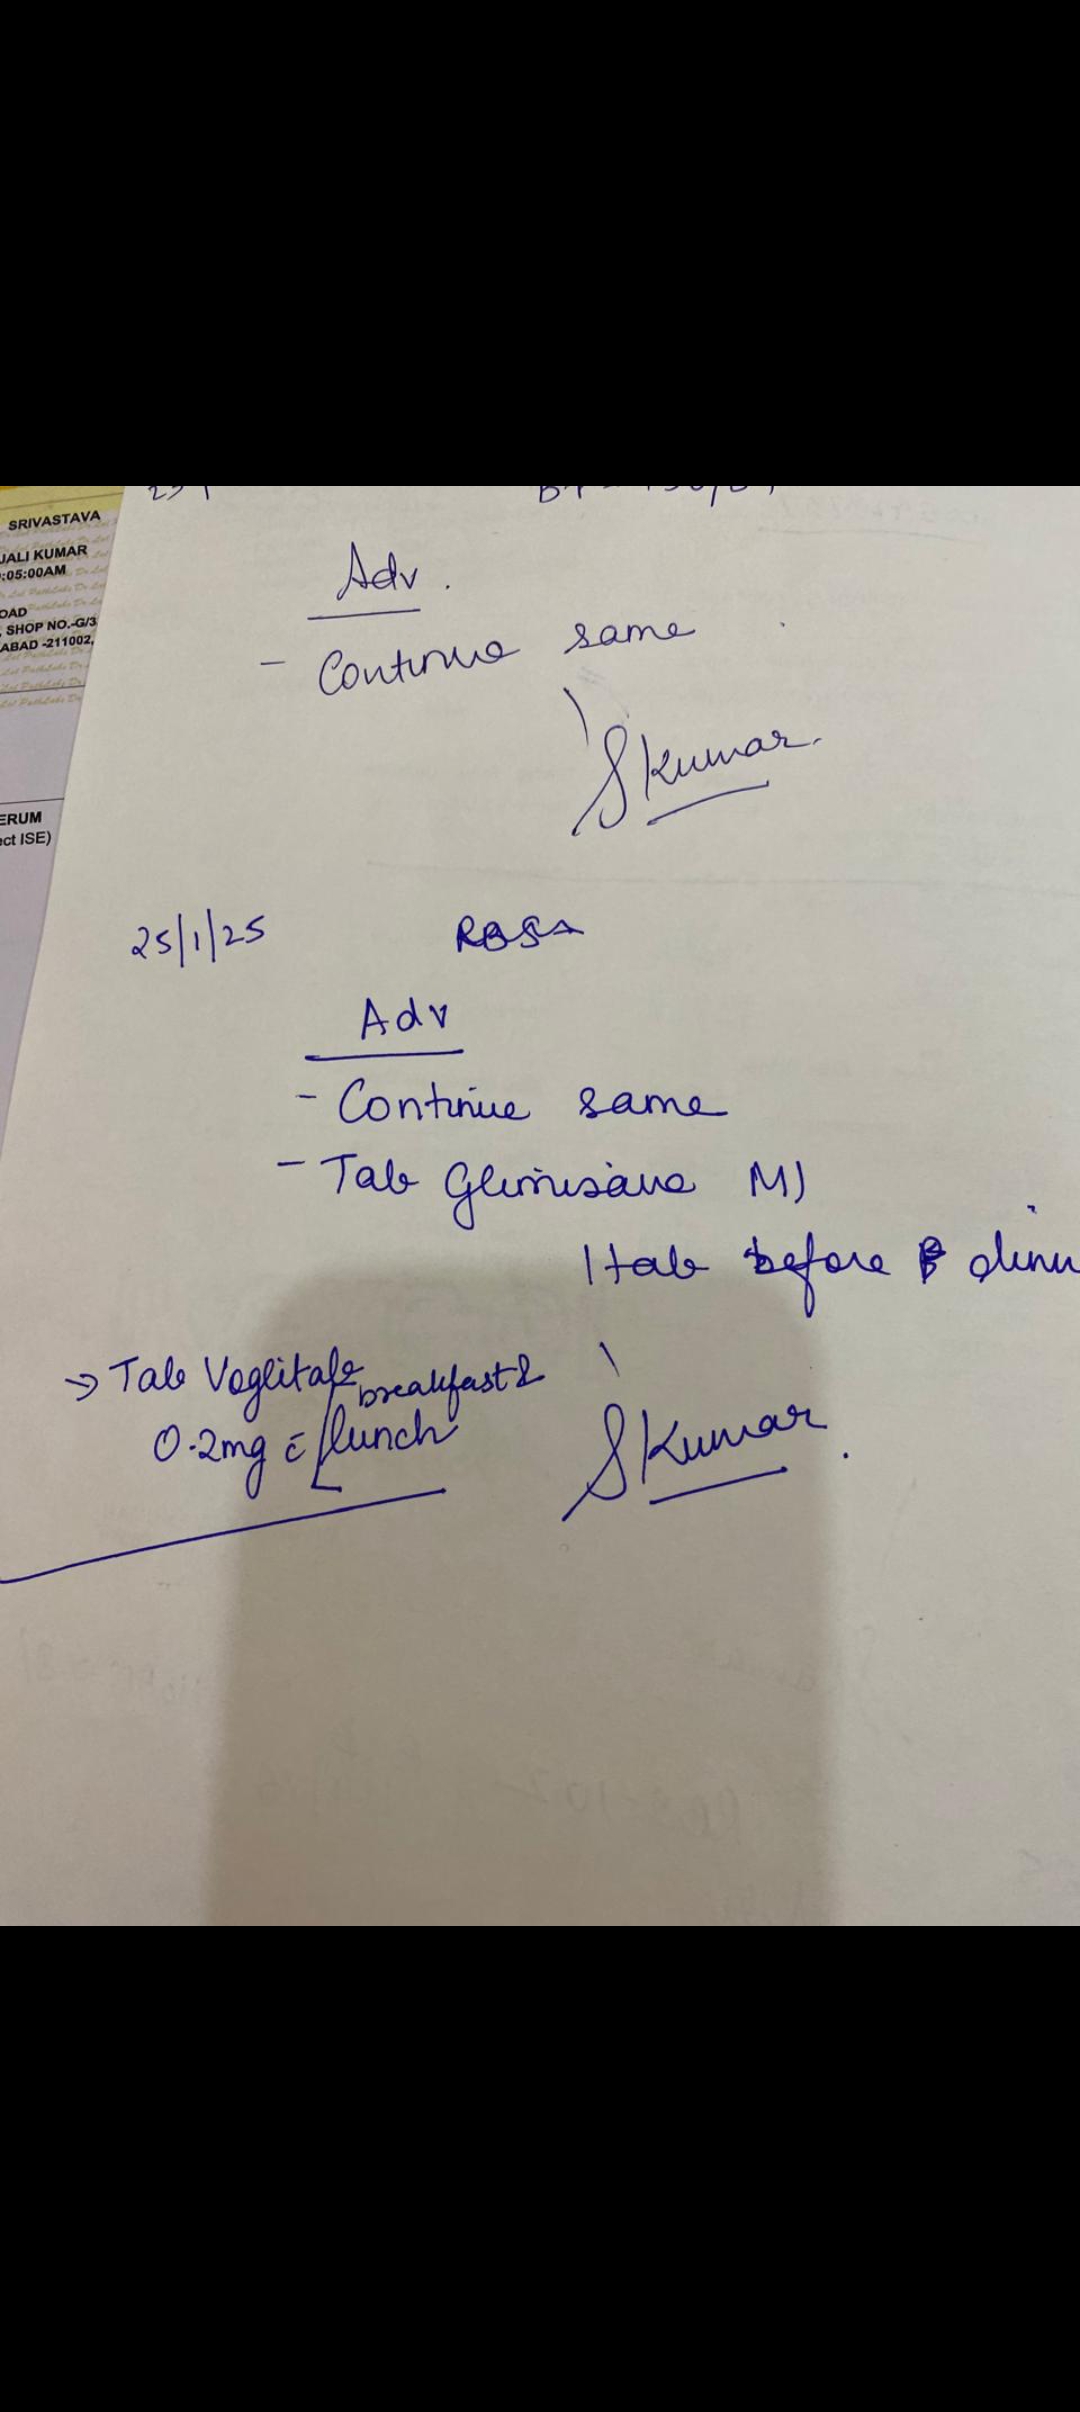 SRIVASTAVA
JALI KUMAR
:05:00AM
OAD
, SHOP NO.-G/3
ABAD -211002,
ERUM
ect ISE)
Adv.
- Continue same
SKumar.
25/1/25
Adv
- Continue same
- Tab M1
1 tab before dinn
→ Tab breakfast &
0.2mg c̄ lunch
SKumar.